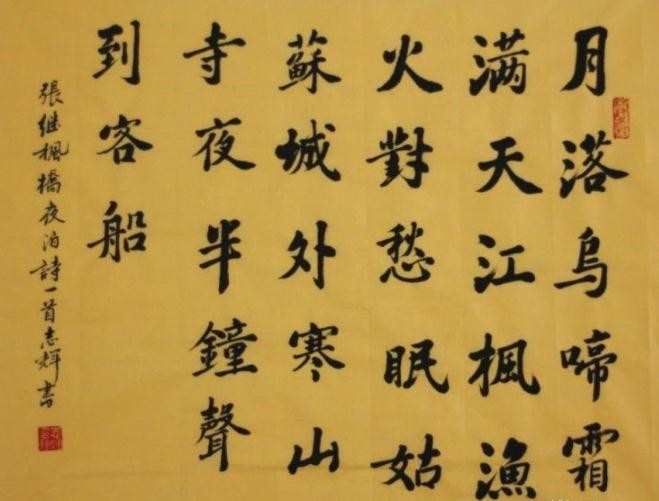 月落烏啼霜
满天江楓漁
火對愁眠姑
蘇城外寒山
寺夜半鐘聲
到客船
張继楓橋夜泊詩一首志輝書